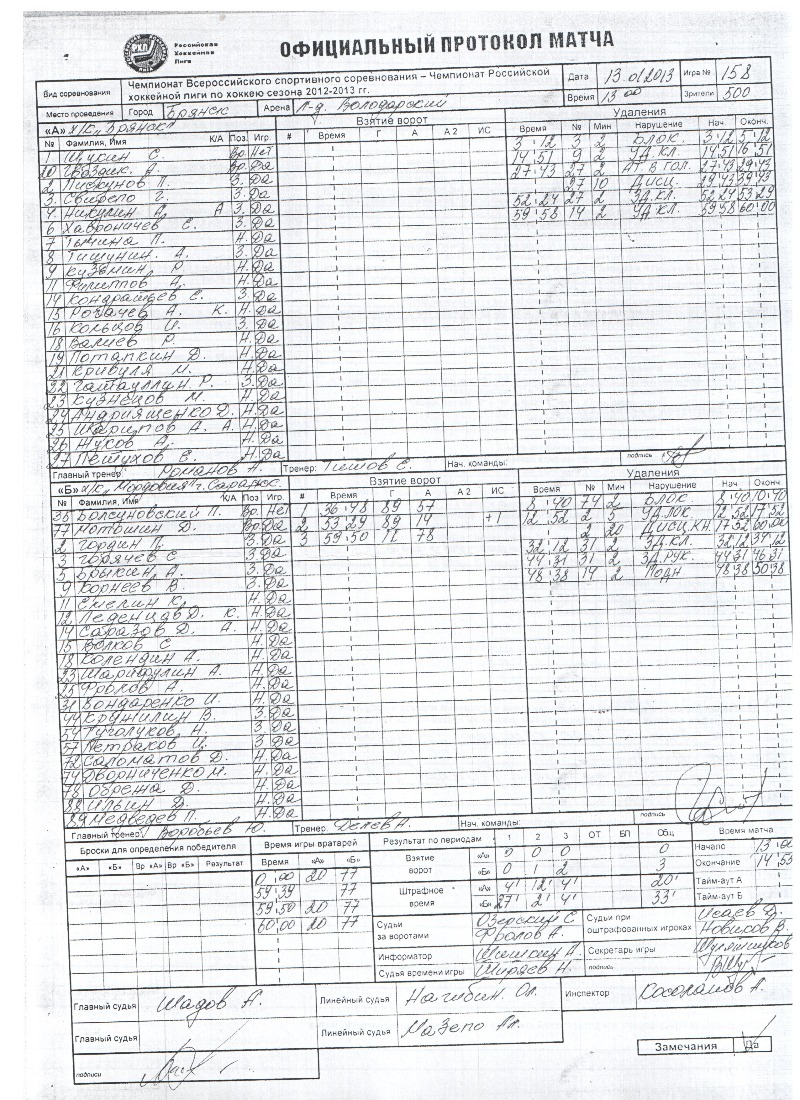 Российская Хоккейная Лига
ОФИЦИАЛЬНЫЙ ПРОТОКОЛ МАТЧА
Вид соревнования Чемпионат Всероссийского спортивного соревнования – Чемпионат Российской хоккейной лиги по хоккею сезона 2012-2013 гг. Дата 13.01.2013 Игра № 158
Время 13 00 Зрители 500
Место проведения Город Брянск Арена Л-д. Володарский
«А» Х/К „Брянск" Взятие ворот Удаления
№ Фамилия, Имя К/А Поз. Игр. # Время Г А А 2 ИС Время № Мин Нарушение Нач. Оконч.
1 Щукин С. Вр. Нет 3 12 3 2 БЛОК. 3 12 5 12
20 Гвоздик А. Вр. Да 14 51 9 2 УД.КЛ. 14 51 16 51
2 Пискунов П. З. Да 27 43 27 2 АТ. В ГОЛ. 27 43 29 43
3 Свирепо Г. З. Да 27 10 ДИСЦ. 29 43 39 43
4 Никулин А. А З. Да 52 24 27 2 ЗД.КЛ. 52 24 53 29
6 Хаврoничев С. З. Да 59 58 14 2 УД.КЛ. 59 58 60 00
7 Тюмина П. Н. Да
8 Тишунин А. З. Да
9 Кузьмин Р. Н. Да
11 Филиппов А. Н. Да
14 Кондрашев С. З. Да
15 Рогачев А. К. Н. Да
16 Кольцов И. З. Да
18 Валиев Р. Н. Да
19 Потапкин Д. Н. Да
21 Кривуля М. Н. Да
22 Гатауллин Р. З. Да
23 Кузнецов М. Н. Да
24 Андриященко Д. Н. Да
25 Шарипов А. А. Н. Да
26 Жуков А. Н. Да
27 Петухов Е. Н. Да
Главный тренер: Романов А. Тренер: Титов Е. Нач. команды: подпись
«Б» Х/К „Мордовия" г. Саранск Взятие ворот Удаления
№ Фамилия, Имя К/А Поз Игр. # Время Г А А 2 ИС Время № Мин Нарушение Нач Оконч
35 Болсуновский П. Вр. Нет 1 36 48 89 57 8 40 74 2 БЛОК 8 40 10 40
77 Мотошин Д. Вр. Да 2 53 29 89 14 +1 12 52 2 5 УД.ЛОК 12 52 17 52
2 Гордин П. З. Да 3 59 50 11 78 2 20 ДИСЦ.КН. 17 52 60 00
3 Горячев С З. Да 32 12 31 2 ЗД.КЛ. 32 12 34 12
5 Брыкин А. З. Да 44 31 31 2 ЗД.РУК. 44 31 46 31
9 Корнеев В. З. Да 48 38 14 2 ПОДН 48 38 50 38
11 Смелин К. Н. Да
12 Леденцов Д. К. Н. Да
14 Саразов Д. А. Н. Да
15 Волков С Н. Да
18 Колендин А. Н. Да
23 Шарифулин А. Н. Да
25 Фролов А. Н. Да
31 Бондаренко И. Н. Да
44 Кружилин В. З. Да
54 Туголуков Н. З. Да
57 Петраков И. З Да
72 Саломатов Д. Н. Да
74 Дворниченко М. Н. Да
78 Обрежа Д. Н. Да
88 Ильин Д. Н. Да
89 Медведев П. Н. Да
Главный тренер: Воробьев Ю. Тренер: Делев А. Нач. команды: подпись
Броски для определения победителя Время игры вратарей Результат по периодам 1 2 3 ОТ БП Общ Время матча
«А» «Б» Вр «А» Вр «Б» Результат Время «А» «Б» Взятие ворот «А» 0 0 0 0 Начало 13 00
0 00 20 77 «Б» 0 1 2 3 Окончание 14 55
59 39 77 Штрафное время «А» 4' 12' 4' 20' Тайм-аут А
59 50 20 77 «Б» 27' 2' 4' 33' Тайм-аут Б
60 00 20 77 Судьи за воротами Озерский С. Фролов А. Судьи при оштрафованных игроках Исаев Д. Новиков В.
Информатор Шишкин А. Секретарь игры
Судья времени игры Ширяев Н. подпись
Главный судья Шадов А. Линейный судья Нагибин Ол. Инспектор
Главный судья Линейный судья Мазепо Ал.
подписи Замечания Да